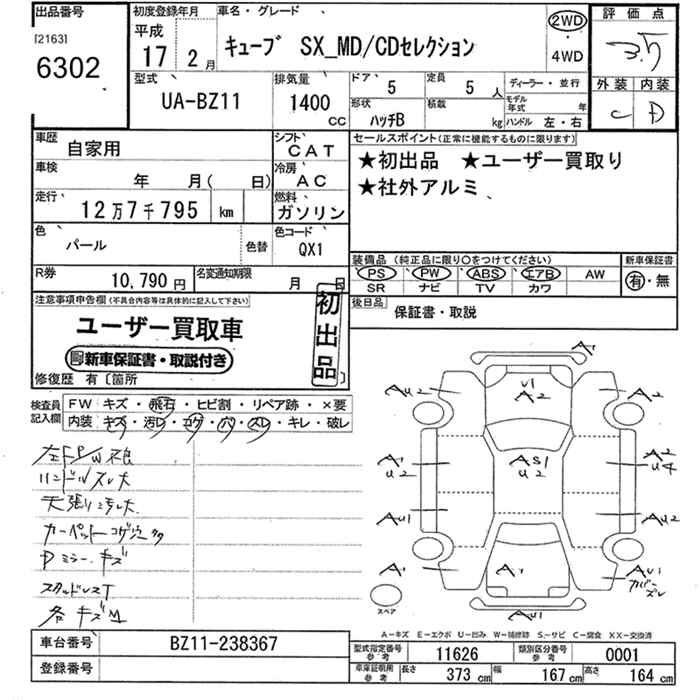 出品番号
[2163]
6302
初度登録年月
平成
17 2月
車名・グレード
キューブ SX_MD/CDセレクション
2WD
・
4WD
評価点
3.5
外装 内装
C D
型式
UA-BZ11
排気量
1400
CC
ドア
5
定員
5 人
形状
ハッチB
積載
kg
ディーラー・並行
モデル年式 年
ハンドル 左・右
車歴
自家用
シフト
CAT
車検
年 月( 日)
冷房
AC
走行
12万7千795 km
燃料
ガソリン
色
パール
色替
色コード
QX1
R券
10,790円
名変通知期限
月 日
セールスポイント(正常に機能するものに限ります)
★初出品 ★ユーザー買取り
★社外アルミ
装備品 (純正品に限り○をつけてください)
PS PW ABS エアB AW
SR ナビ TV カワ
新車保証書
有・無
後日品
保証書・取説
注意事項申告欄(不具合内容等は具体的に記入して下さい)
ユーザー買取車
新車保証書・取説付き
初出品
修復歴 有〔箇所
検査員記入欄
FW キズ・飛石・ヒビ割・リペア跡・×要
内装 キズ・汚レ・コゲ・穴・スレ・キレ・破レ
左FP/W不良
ハンドルスレ大
天張り
カーペットコゲ
Dミラーキズ
スタッドレスT
各キズ
A
U1
A2
AU2
AU2
AS1
U2
A1
U2
A2
U4
AU1
AU2
A1
A1
AU1
カバースレ
AU1
スペア
A-キズ E-エクボ U-凹み W-補修跡 S-サビ C-腐食 XX-交換済
車台番号
BZ11-238367
登録番号
型式指定番号
参考
11626
類別区分番号
参考
0001
車庫証明用
参考
長さ 373 cm 幅 167 cm 高さ 164 cm